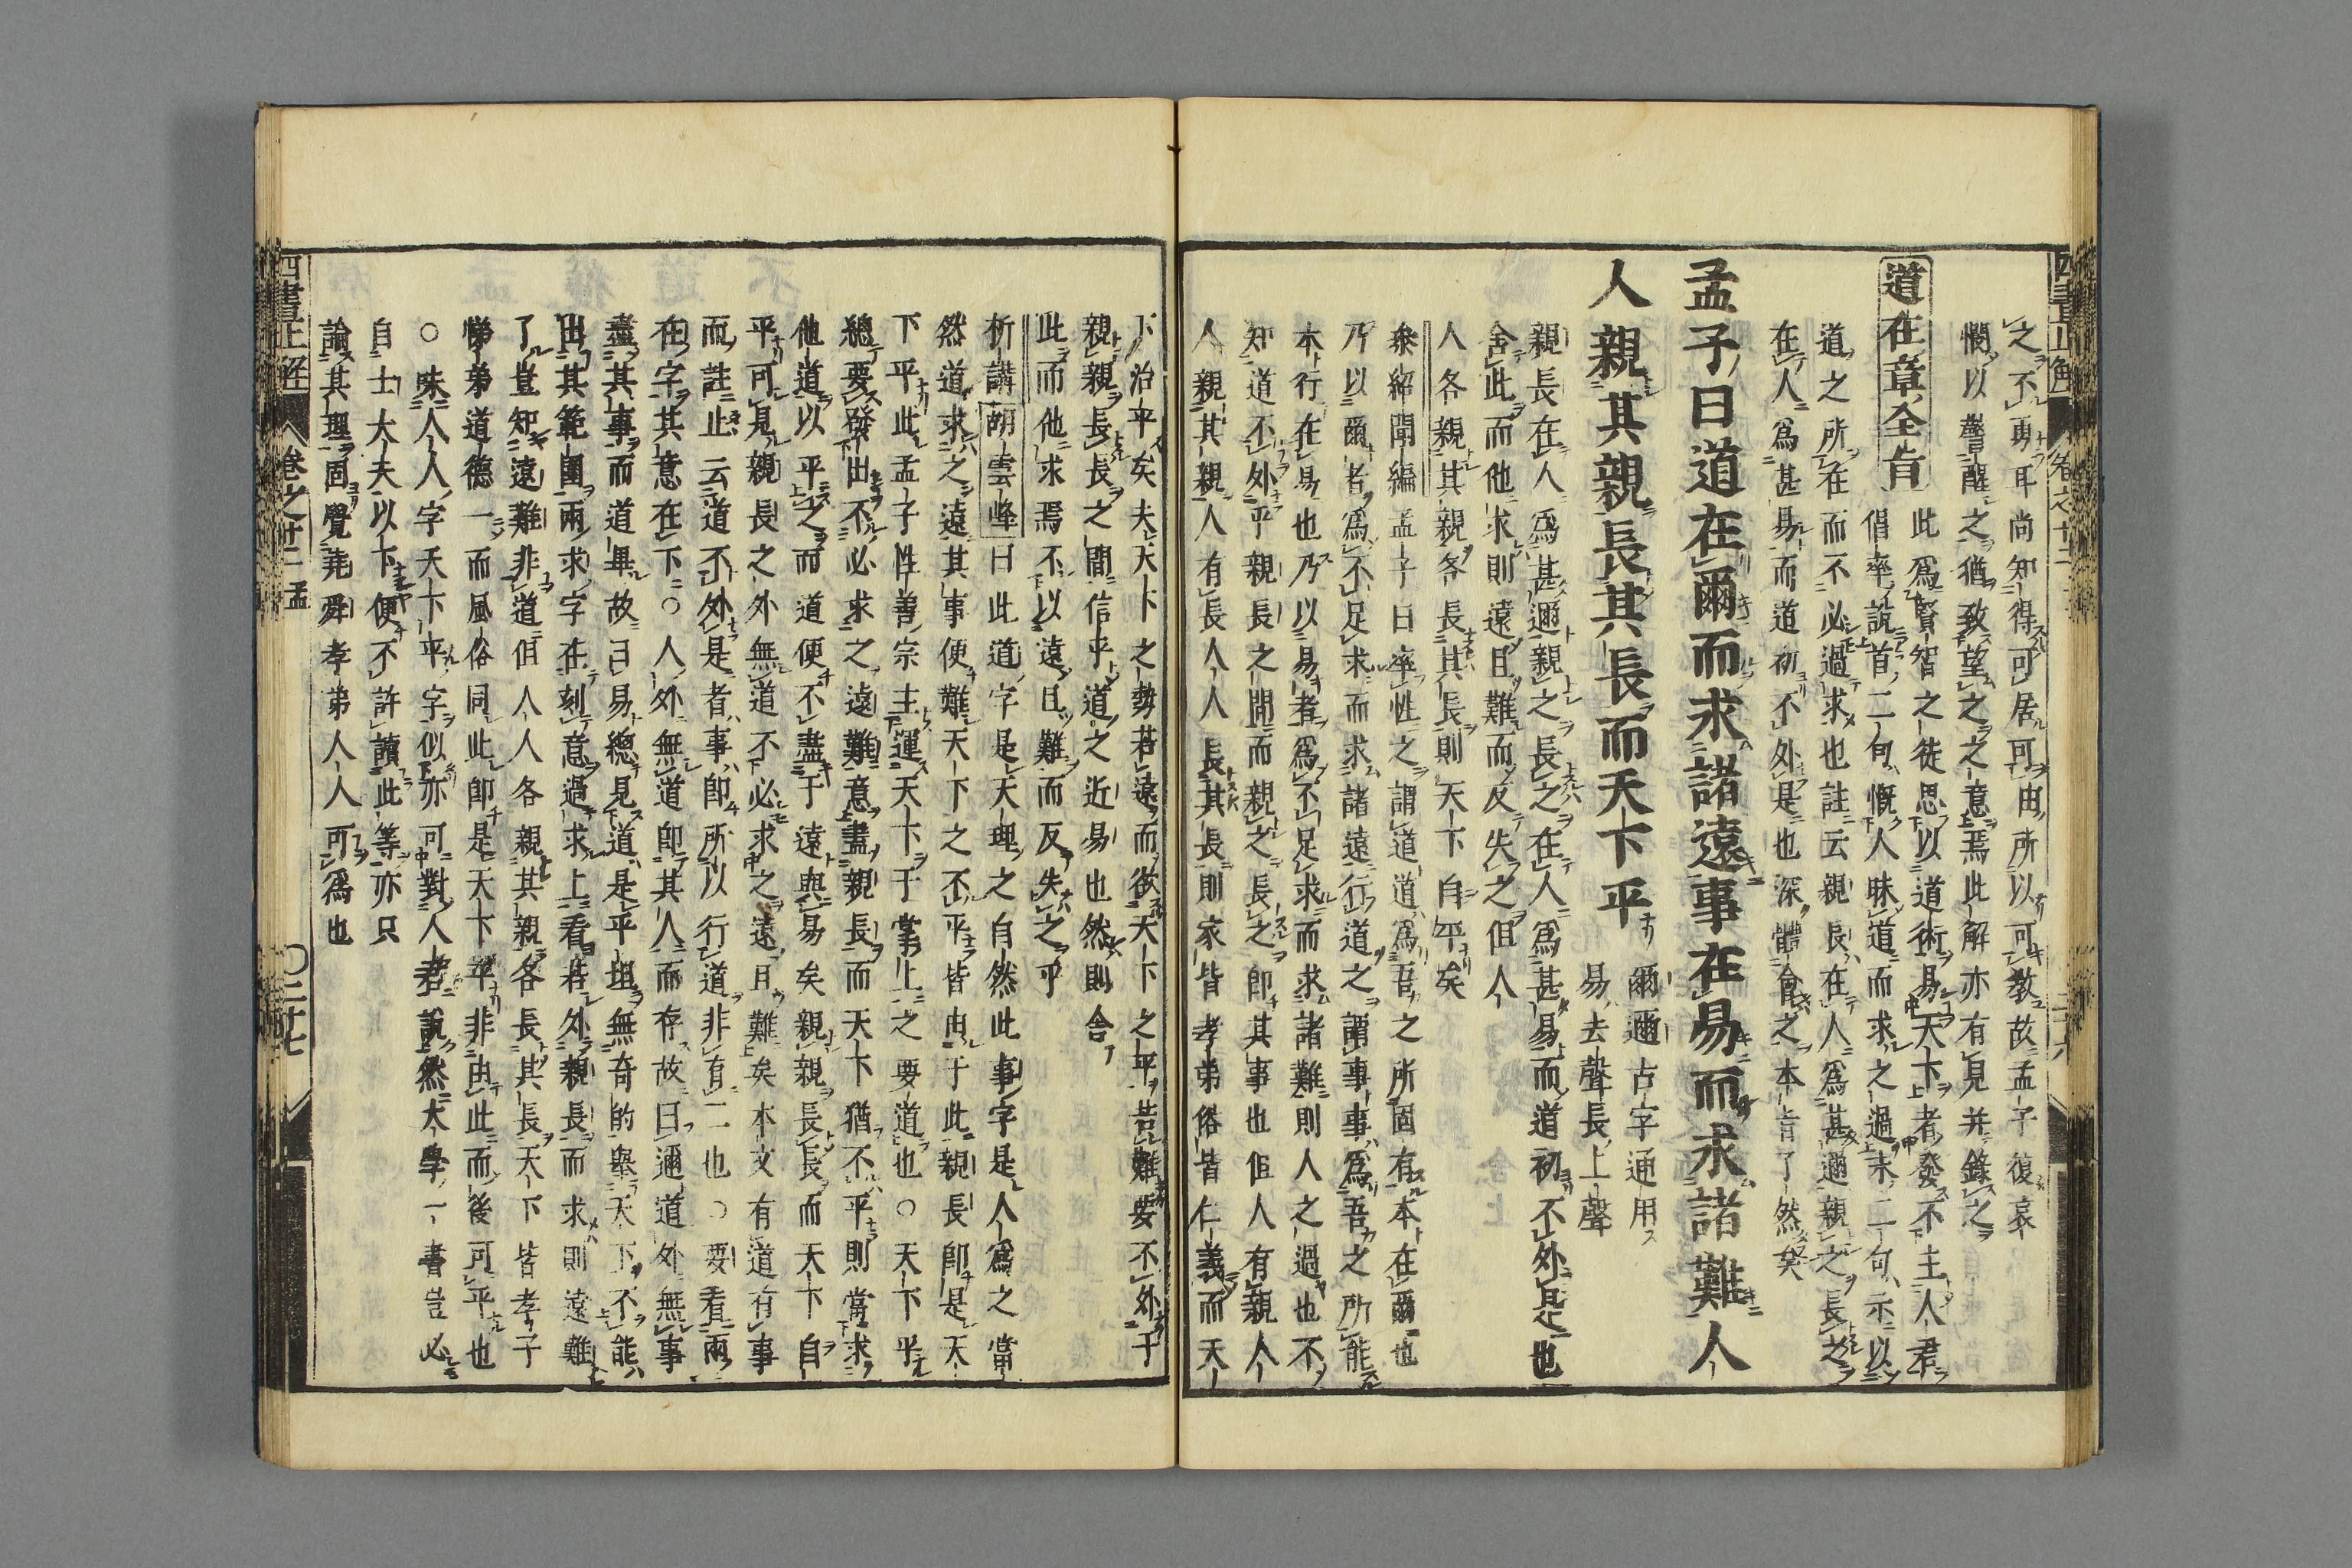 之不專耳尚知得可居可由所以可教故孟子復哀
憫以警醒之猶致望之之意焉此解亦有見并錄之
道在章全旨 此爲賢智之徒思以道術易天下者發不主人君
倡率說首二句慨人昧道而求之過末二句示以
道之所在而不必過求也註云親長在人爲甚邇親之長之
在人爲甚易而道初不外是也深體會之本旨了然矣
孟子曰道在爾而求諸遠事在易而求諸難人
人親其親長其長而天下平
爾邇古字通用
易去聲長上聲
親長在人爲甚邇親之長之在人爲甚易而道初不外是也
舍此而他求則遠且難而反失之但人
人各親其親各長其長則天下自平矣
衆解聞編 孟子曰率性之謂道道爲吾之所固有本在爾也
乃以爾者爲不足求而求諸遠行道之謂事事爲吾之所能
本行在易也乃以易者爲不足求而求諸難則人之過也不
知道不外乎親長之間而親之長之卽其事也但人有親人
人親其親人有長人人長其長則家皆孝弟俗皆仁義而天
下治平矣夫天下之勢若遠而欲天下之平若難要不外于
親親長長之間信乎道之近易也然則舍
此而他求焉不以遠且難而反失之乎
析講 胡雲峰曰此道字是天理之自然此事字是人爲之當
然道求之遠其事便難天下之不平皆由于此親長卽是天
下平此孟子性善宗主運天下于掌上之要道也○天下平
總要發出不必求之遠難意盡親長而天下猶不平則當求
他道以平之而道便不盡于遠與易矣親親長長而天下自
平可見親長之外無道不必求之遠且難矣本文有道有事
而註止云道不外是者事卽所以行道非有二也○要看兩
在字其意在下○人外無道卽其人而存故曰邇道外無事
盡其事而道畢故曰易總見道是平坦無奇的舉天下不能
出其範圍兩求字在刻意過求上看若外親長而求則遠難
了豈知遠難非道但人人各親其親各長其長天下皆孝子
悌弟道德一而風俗同此卽是天下平非由此而後可平也
○昧人人字天下平字似亦可對人君說然大學一書豈必
自士大夫以下便不許讀此等亦只
論其理固覺堯舜孝弟人人可爲也
四書正解 卷之廿二 孟 ○二十七